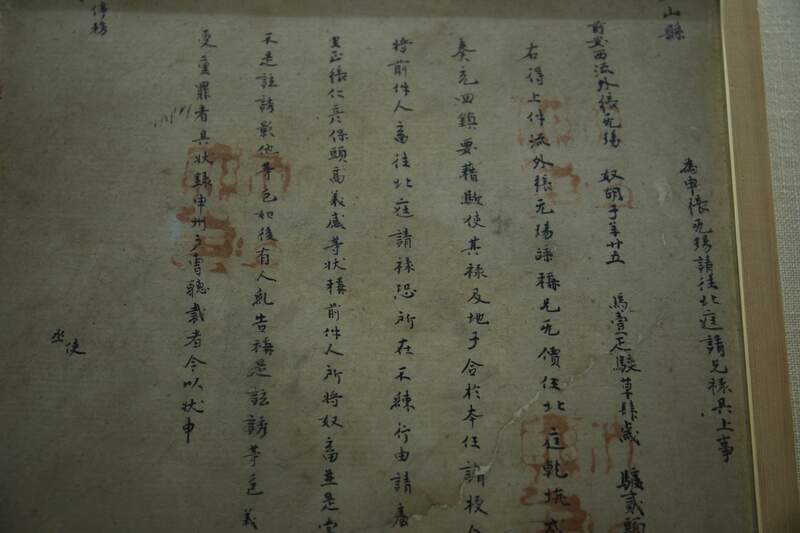 山縣
為申張无瑒請往北庭請兄祿具上事
前安西流外張无瑒 奴胡子年廿五 馬壹疋駮草肆歲 驢貳頭
右得上件流外張无瑒牒稱兄无價任北庭乾坑戍
奏充四鎮要藉驅使其祿及地子合於本任請授今
將前件人畜往北庭請祿恐所在不練行由請處
里正張仁彥保頭高義感等狀稱前件人所將奴畜並是當
不是詃誘影他等色如後有人糺告稱是詃誘等色義
受重罪者具狀錄申州戶曹聽裁者今以狀申
停務
丞使